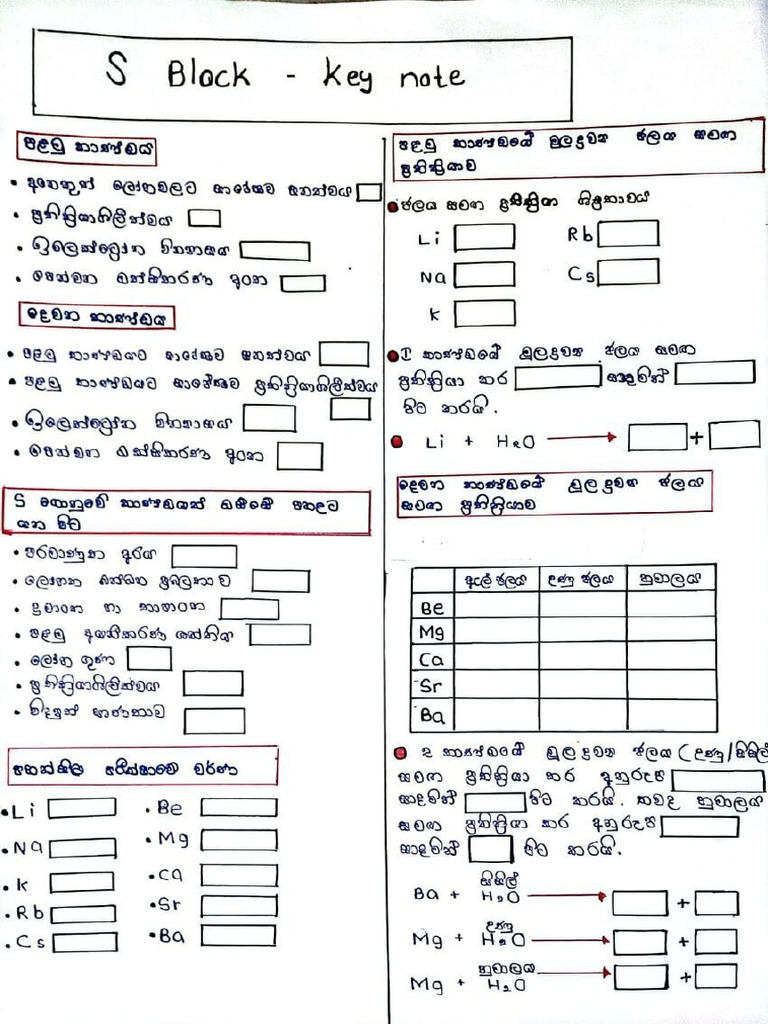 S Block - Key note
පළමු කාණ්ඩය
• අනෙකුත් ලෝහවලට සාපේක්ෂව ඝනත්වය
• ප්‍රතික්‍රියාශීලීත්වය
• ඉලෙක්ට්‍රෝන වින්‍යාසය
• පෙන්වන ඔක්සිකරණ අංක
දෙවන කාණ්ඩය
• පළමු කාණ්ඩයට සාපේක්ෂව ඝනත්වය
• පළමු කාණ්ඩයට සාපේක්ෂව ප්‍රතික්‍රියාශීලීත්වය
• ඉලෙක්ට්‍රෝන වින්‍යාසය
• පෙන්වන ඔක්සිකරණ අංක
S ගොනුවේ කාණ්ඩයක් ඔස්සේ පහළට
යන විට
• පරමාණුක අරය
• ලෝහක බන්ධන ප්‍රබලතාව
• ද්‍රවාංක හා තාපාංක
• පළමු අයනීකරණ ශක්තිය
• ලෝහ ගුණ
• ප්‍රතික්‍රියාශීලීත්වය
• විද්‍යුත් සෘණතාව
පහන්සිළු පරීක්ෂාවේ වර්ණ
• Li • Be
• Na • Mg
• K • Ca
• Rb • Sr
• Cs • Ba
පළමු කාණ්ඩයේ මූලද්‍රව්‍ය ජලය සමග
ප්‍රතික්‍රියාව
ජලය සමග ප්‍රතික්‍රියා ශීඝ්‍රතාවය
Li Rb
Na Cs
K
I කාණ්ඩයේ මූලද්‍රව්‍ය ජලය සමග
ප්‍රතික්‍රියා කර සාදමින්
පිට කරයි.
Li + H2O → +
දෙවන කාණ්ඩයේ මූලද්‍රව්‍ය ජලය
සමග ප්‍රතික්‍රියාව
ඇල් ජලය උණු ජලය හුමාලය
Be
Mg
Ca
Sr
Ba
2 කාණ්ඩයේ මූලද්‍රව්‍ය ජලය (උණු/සිසිල්
සමග ප්‍රතික්‍රියා කර අනුරූප
සාදමින් පිට කරයි. තවද හුමාලය
සමග ප්‍රතික්‍රියා කර අනුරූප
සාදමින් පිට කරයි.
සිසිල්
Ba + H2O → +
උණු
Mg + H2O → +
හුමාලය
Mg + H2O → +